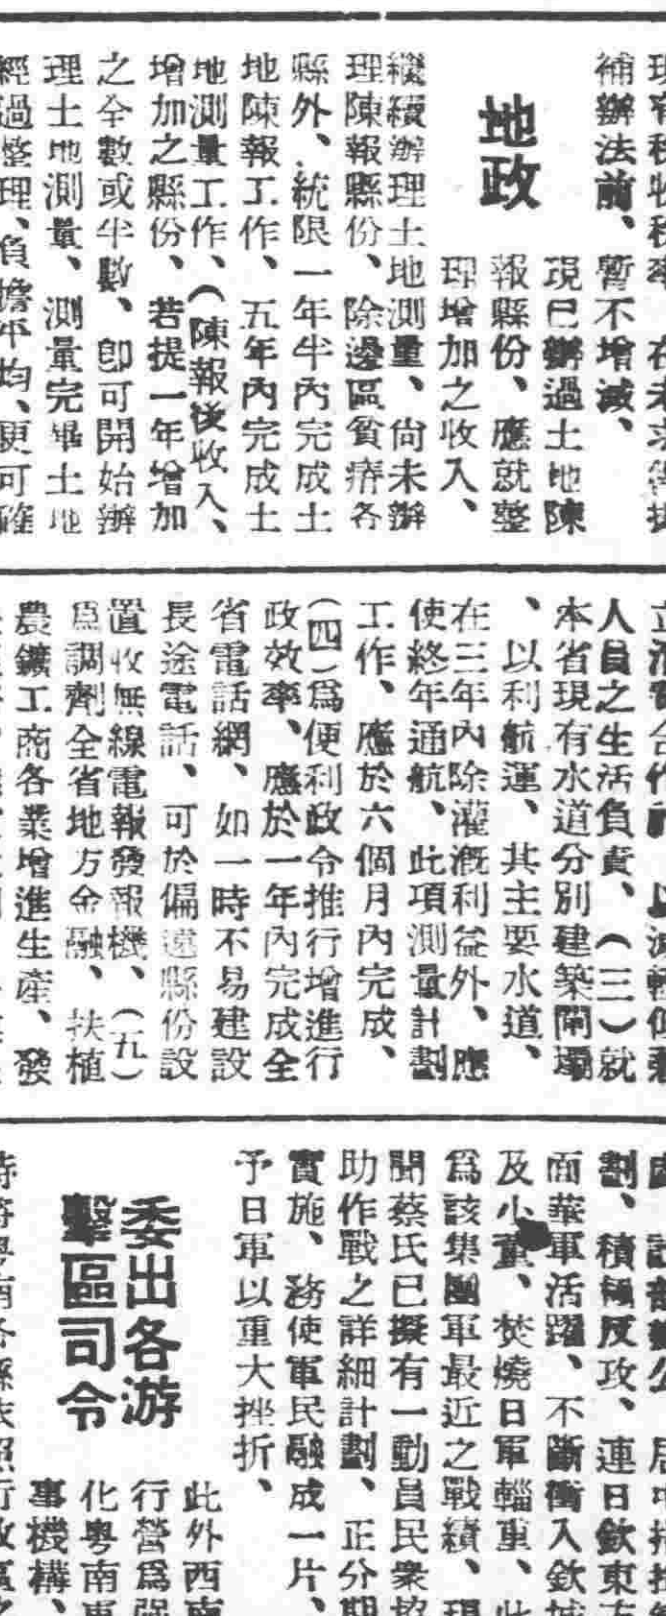 補辦法前、暫不增減、
地政
現已辦過土地陳
報縣份、應就整
理增加之收入、
繼續辦理土地測量、尙未辦
理陳報縣份、除邊區貧瘠各
縣外、統限一年半內完成土
地陳報工作、五年內完成土
地測量工作、（陳報後收入、
增加之縣份、若提一年增加
之全數或半數、卽可開始辦
理土地測量、測量完畢土地
經過整理、負擔平均、更可確
人員之生活負責、（三）就
本省現有水道分別建築閘壩
、以利航運、其主要水道、
在三年內除灌漑利益外、應
使終年通航、此項測量計劃
工作、應於六個月內完成、
（四）爲便利政令推行增進行
政效率、應於一年內完成全
省電話網、如一時不易建設
長途電話、可於偏遠縣份設
置收無線電報發報機、（五）
爲調劑全省地方金融、扶植
農鑛工商各業增進生產、發
劃、積極反攻、連日欽東
面華軍活躍、不斷衝入欽城
及小董、焚燒日軍輜重、此
爲該集團軍最近之戰績、現
聞蔡氏已擬有一動員民衆協
助作戰之詳細計劃、正分期
實施、務使軍民融成一片、
予日軍以重大挫折、
委出各游
擊區司令
此外西南
行營爲强
化粤南
事機構、